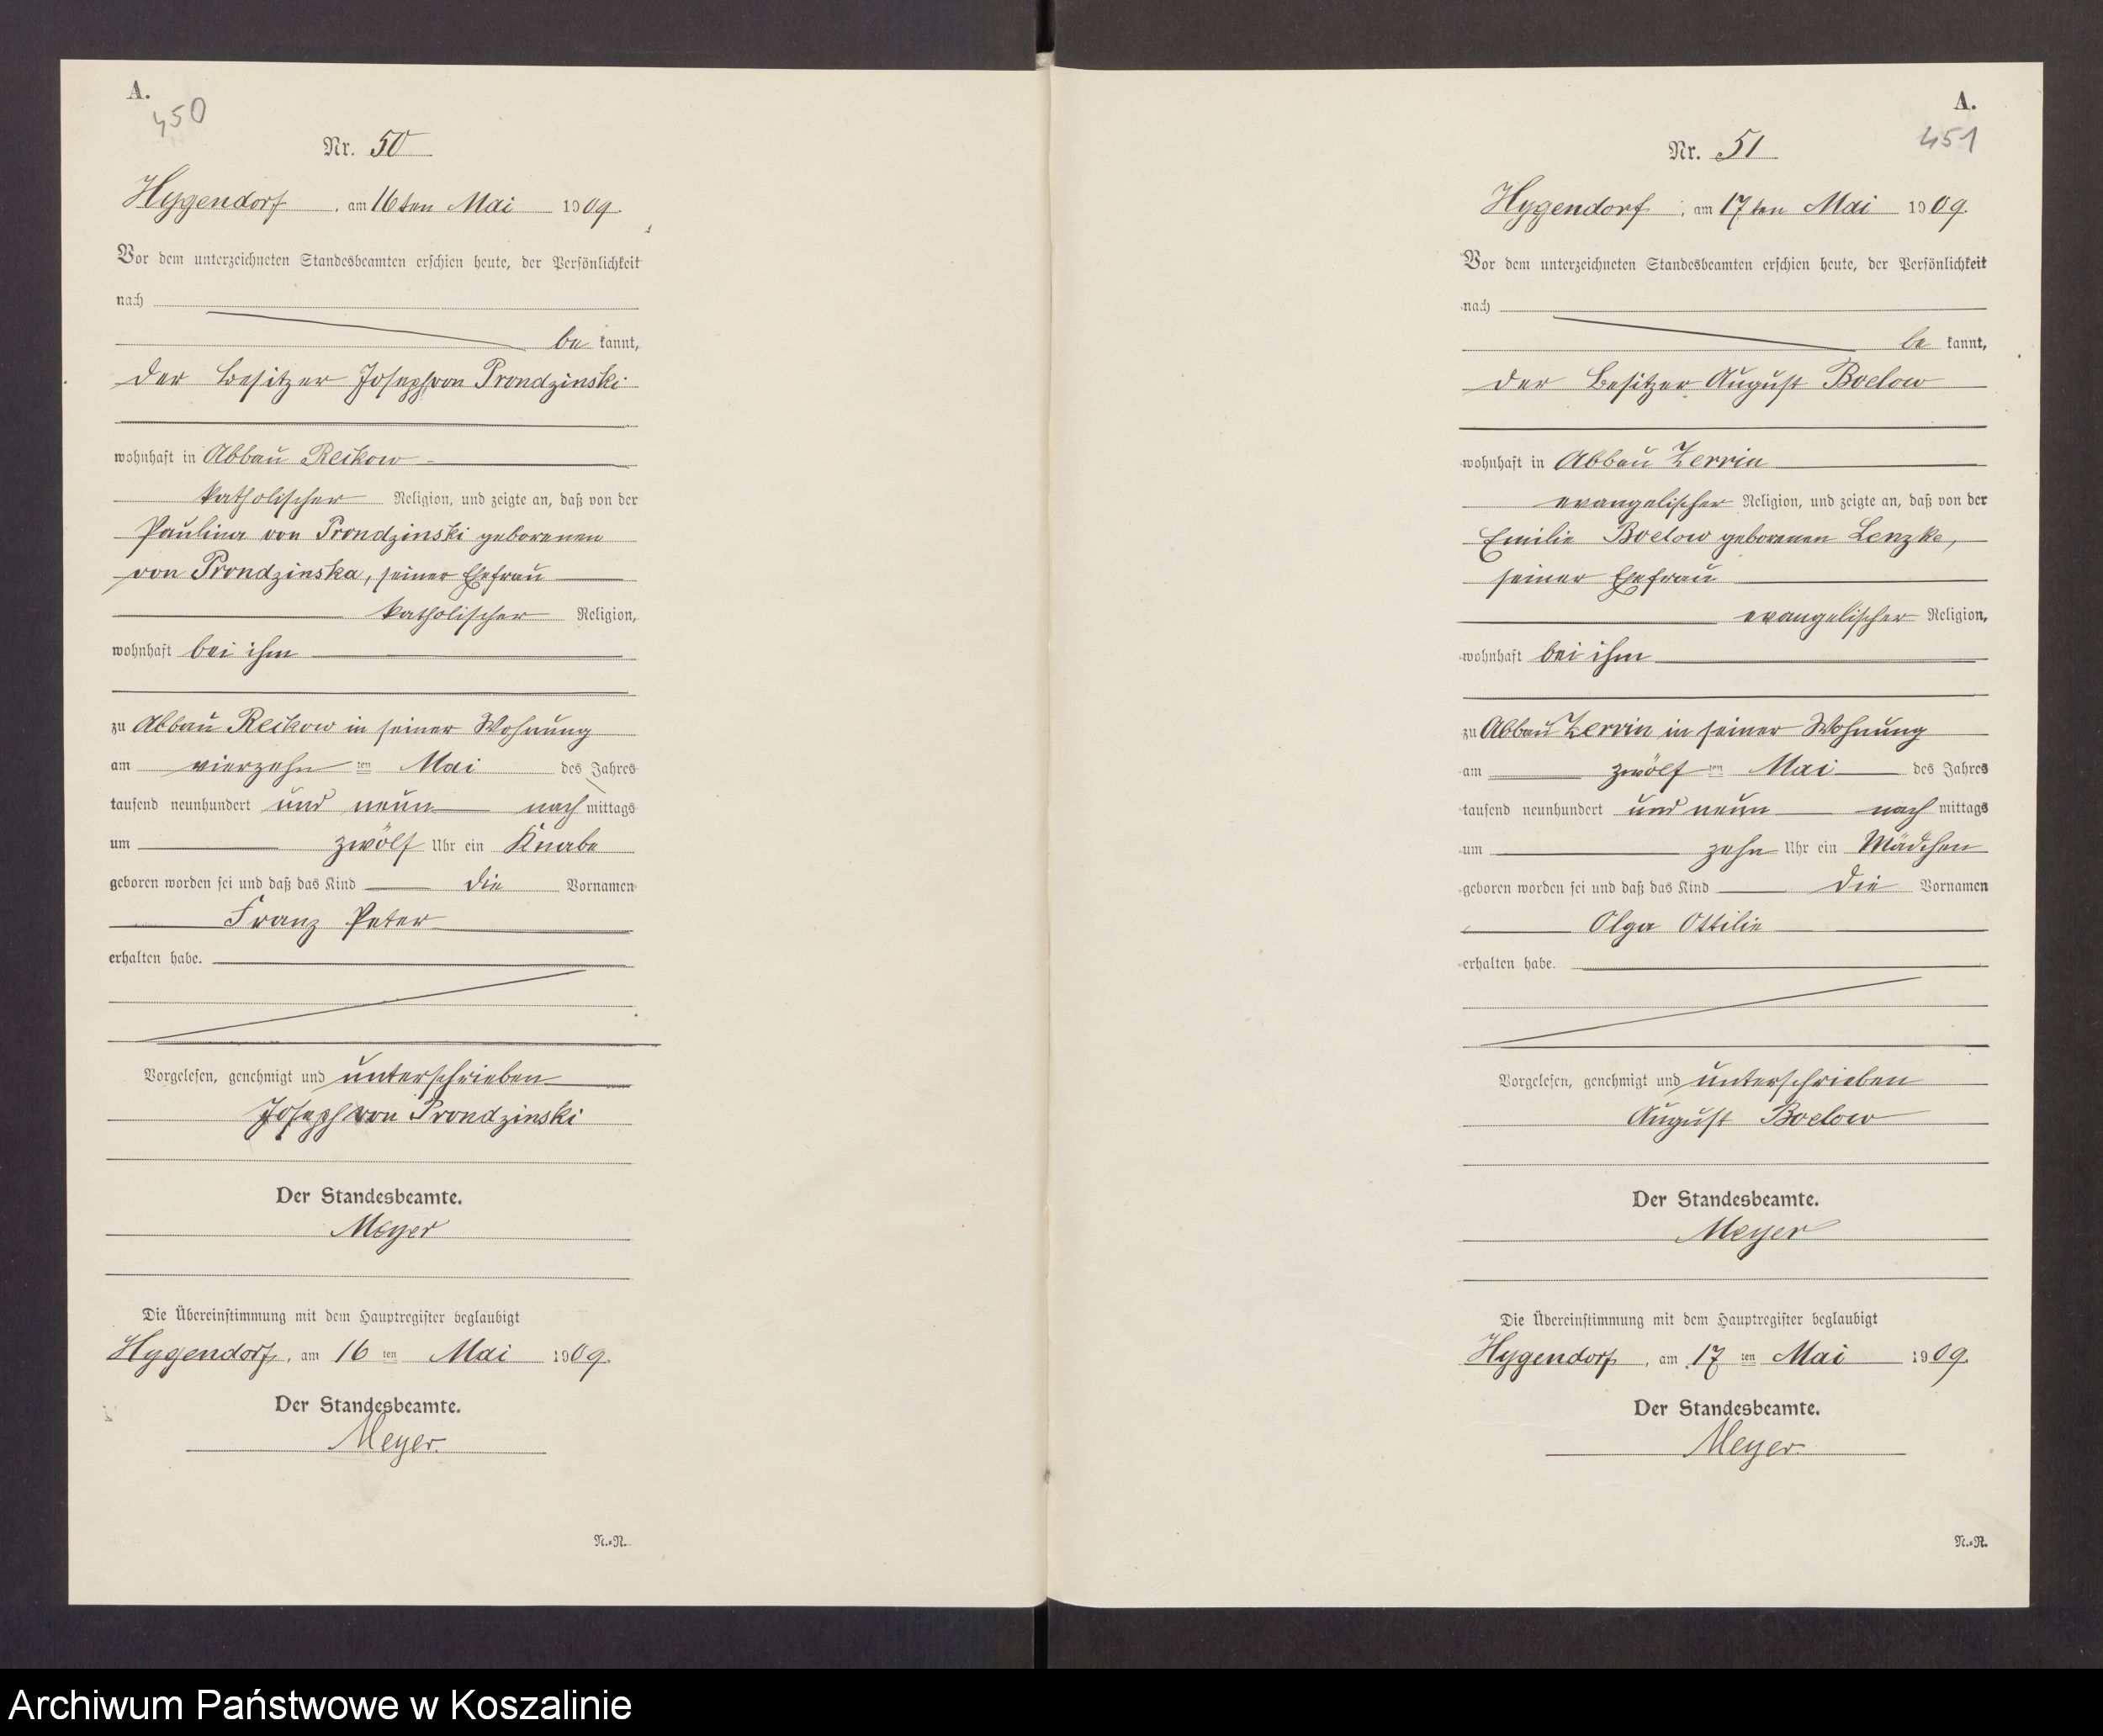 A.
450
Nr. 50
Hygendorf, am 16ten Mai 1909.
Vor dem unterzeichneten Standesbeamten erschien heute, der Persönlichkeit
nach
be kannt,
der Besitzer Joseph von Prondzinski
wohnhaft in Abbau Reckow
katholischer Religion, und zeigte an, daß von der
Paulina von Prondzinski geborenen
von Prondzinska, seiner Ehefrau
katholischer Religion,
wohnhaft bei ihm
zu Abbau Reckow in seiner Wohnung
am vierzehn ten Mai des Jahres
tausend neunhundert und neun nach mittags
um zwölf Uhr ein Knabe
geboren worden sei und daß das Kind die Vornamen
Franz Peter
erhalten habe.
Vorgelesen, genehmigt und unterschrieben
Joseph von Prondzinski
Der Standesbeamte.
Meyer
Die Übereinstimmung mit dem Hauptregister beglaubigt
Hygendorf, am 16 ten Mai 1909.
Der Standesbeamte.
Meyer.
N.=R.
A.
451
Nr. 51
Hygendorf, am 17ten Mai 1909.
Vor dem unterzeichneten Standesbeamten erschien heute, der Persönlichkeit
nach
be kannt,
der Besitzer August Boelow
wohnhaft in Abbau Zerrin
evangelischer Religion, und zeigte an, daß von der
Emilie Boelow geborenen Lenzke,
seiner Ehefrau
evangelischer Religion,
wohnhaft bei ihm
zu Abbau Zerrin in seiner Wohnung
am zwölf ten Mai des Jahres
tausend neunhundert und neun nach mittags
um zehn Uhr ein Mädchen
geboren worden sei und daß das Kind die Vornamen
Olga Ottilie
erhalten habe.
Vorgelesen, genehmigt und unterschrieben
August Boelow
Der Standesbeamte.
Meyer
Die Übereinstimmung mit dem Hauptregister beglaubigt
Hygendorf, am 17 ten Mai 1909.
Der Standesbeamte.
Meyer.
N.=R.
Archiwum Państwowe w Koszalinie